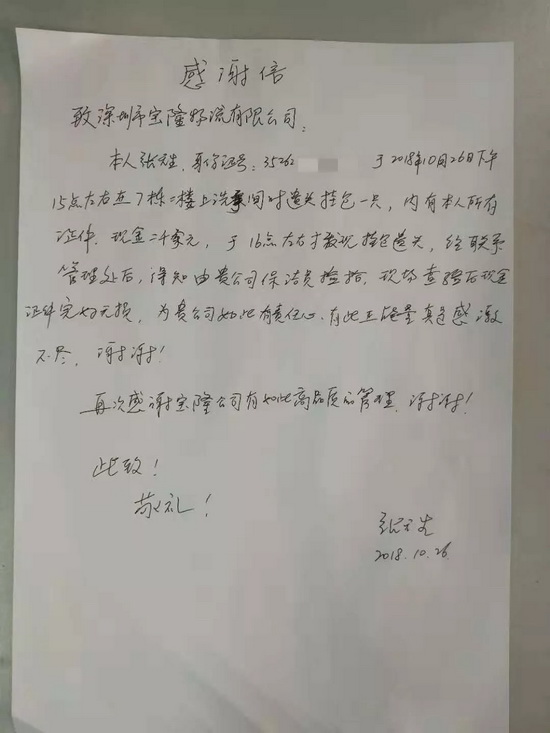 感谢信
致深圳市宝隆物流有限公司：
本人张先生，身份证号：35262 于2018年10月26日下午
15点左右在7栋二楼上洗手间时遗失挂包一只，内有本人所有
证件、现金二千余元，于16点左右才发现挂包遗失，经联系
管理处后，得知由贵公司保洁员捡拾，现场查验后现金
证件完好无损，为贵公司如此有责任心、有此正能量真是感激
不尽，谢谢！
再次感谢宝隆公司有如此高品质的管理，谢谢！
此致！
敬礼！
张先生
2018.10.26